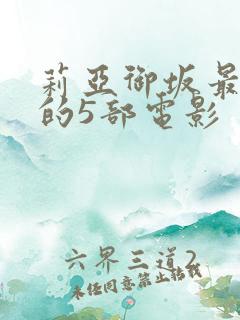 莉亞御坂最
的5部電影
六界三道2
未经同意禁止转载